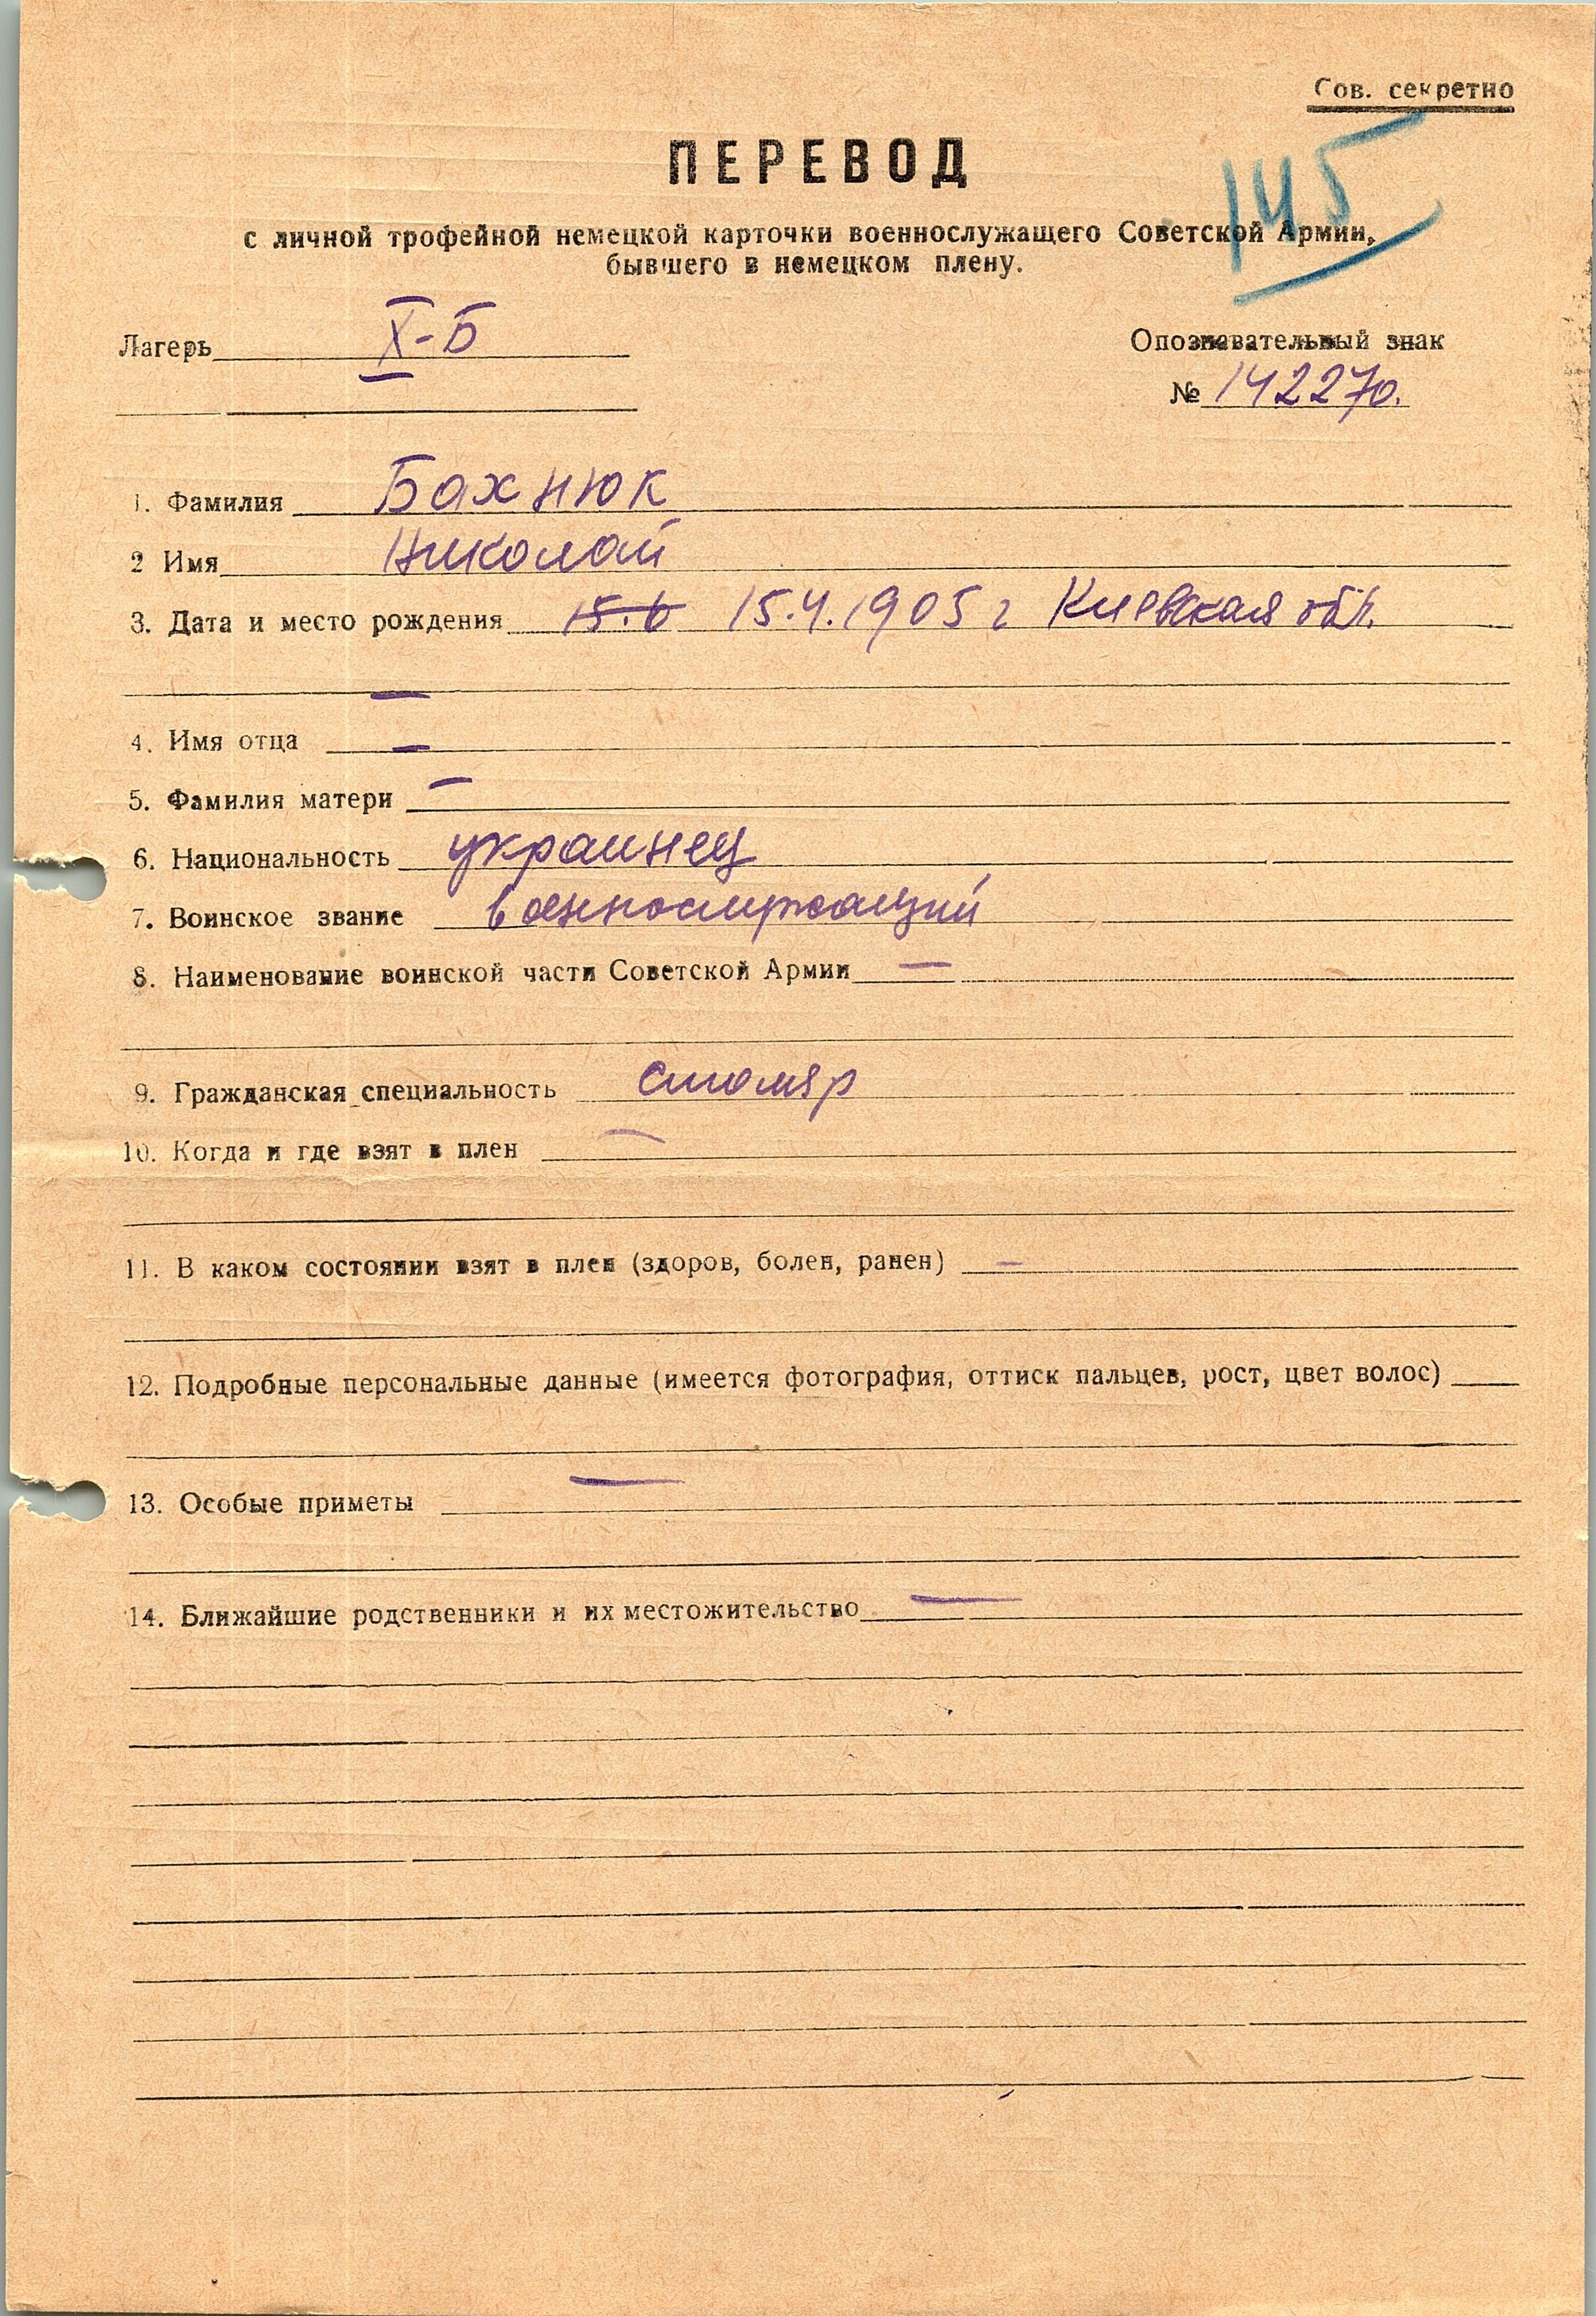 Сов. секретно
ПЕРЕВОД
145
с личной трофейной немецкой карточки военнослужащего Советской Армии,
бывшего в немецком плену.
Лагерь X-Б
Опознавательный знак
№ 142270.
1. Фамилия Бахнюк
2 Имя Николай
3. Дата и место рождения 15.6 15.4.1905 г Киевская обл.
—
4. Имя отца —
5. Фамилия матери —
6. Национальность украинец
7. Воинское звание военнослужащий
8. Наименование воинской части Советской Армии —
9. Гражданская специальность столяр
10. Когда и где взят в плен —
11. В каком состоянии взят в плен (здоров, болен, ранен) —
12. Подробные персональные данные (имеется фотография, оттиск пальцев, рост, цвет волос)
13. Особые приметы —
14. Ближайшие родственники и их местожительство —